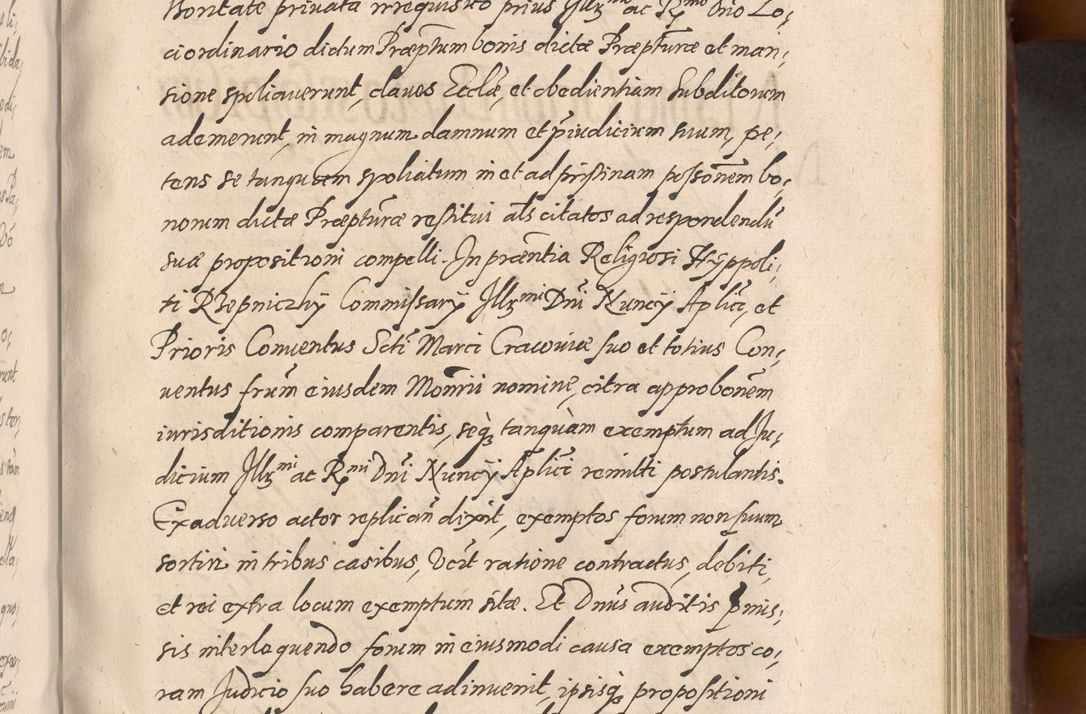 thoritate privata irrequisito prius Illmo ac Rmo Dno Lo-
ci ordinario dictum Præptum bonis dictæ Præpturæ et man-
sione spoliaverunt, claves Ecclæ, et obedientiam subditorum
ademerunt, in magnum damnum et p̄iudicium suum, pe-
tens se tanquam spoliatum in et ad pristinam possonem bo-
norum dictæ Præpturæ restitui als citatos ad respondendū
suæ propositioni compelli. In præntia Religiosi Hyppoli-
ti Rzepniczky Commissarÿ Illmi Dni Nuncÿ Aplici, et
Prioris Conventus Scti Marci Cracoviæ suo et totius Con-
ventus frum eiusdem Monrii nomine, citra approbonem
iurisditionis comparentis, seq̨ tanquàm exemptum ad Ju-
dicium Illmi ac Rmi Dni Nuncÿ Aplici remitti postulantis.
Ex adverso actor replicań dixit, exemptos forum non suum
sortiri in tribus casibus, Vczt ratione contractus, debiti,
et rei extra locum exemptum sitæ. Et Dnus auditis p̄mis-
sis interloquendo forum in eiusmodi causa exemptos co-
ram Judicio suo habere adinvenit, ipsisq̨ propositioni